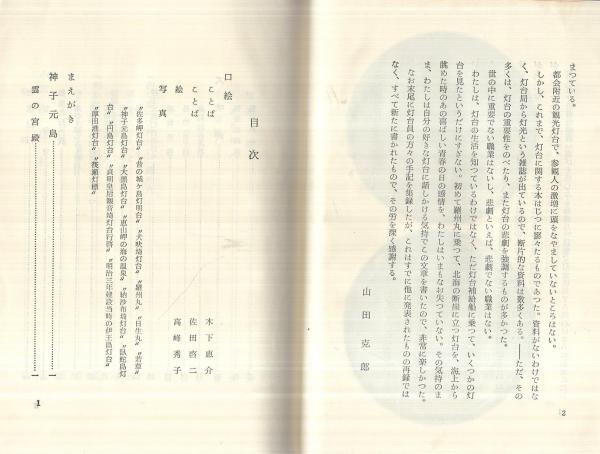 まつている。
都会附近の観光灯台で、参観人の激増に頭をなやましていないところはない。
しかし、これまで、灯台に関する本はじつに寥々たるものであつた。資料がないわけではな
く、灯台局から灯光という雑誌が出ているので、断片的な資料は数多くある。――ただ、その
多くは、灯台の重要性をのべたり、また灯台の悲劇を強調するものが多かつた。
世の中に重要でない職業はないし、悲劇といえば、悲劇でない職業はない。
わたしは、灯台の生活を知つているわけではなく、ただ灯台補給船に乗つて、いくつかの灯
台を見たというだけにすぎない。初めて羅州丸に乗つて、北海の断崖に立つ灯台を、海上から
眺めた時のあの喜ばしい青春の日の感情を、わたしはいまもなお失つていない。その気持のま
ま、わたしは自分の好きな灯台に話しかける気持でこの文章を書いたので、非常に楽しかつた。
なお末尾に灯台員の方々の手記を集録したが、これはすでに他に発表されたものの再録では
なく、すべて新たに書かれたもので、その労を深く感謝する。
山田克郎
2
目次
口絵
ことば 木下恵介
ことば 佐田啓二
絵 高峰秀子
写真
"佐多岬灯台" "昔の城ケ島灯明台" "犬吠埼灯台" "羅州丸" "日生丸" "若草"
"神子元島灯台" "大黒島灯台" "恵山岬の海の温泉" "納沙布埼灯台" "臥蛇島灯
台" "円島灯台" "貞明皇后観音埼灯台行啓" "明治三年建設当時の伊王島灯台"
"厚田港灯台" "俵瀬灯標"
まえがき 1
神子元島
雲の宮殿 1
1